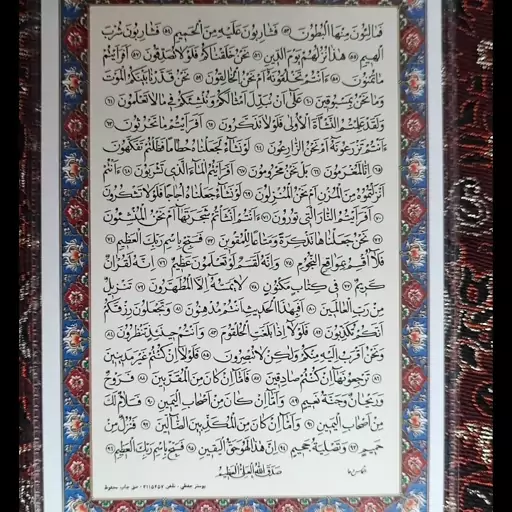 فَمَالِئُونَ مِنْهَا الْبُطُونَ ۝ فَشَارِبُونَ عَلَيْهِ مِنَ الْحَمِيمِ ۝ فَشَارِبُونَ شُرْبَ
الْهِيمِ ۝ هَذَا نُزُلُهُمْ يَوْمَ الدِّينِ ۝ نَحْنُ خَلَقْنَاكُمْ فَلَوْلَا تُصَدِّقُونَ ۝ أَفَرَأَيْتُمْ
مَا تُمْنُونَ ۝ ءَأَنْتُمْ تَخْلُقُونَهُ أَمْ نَحْنُ الْخَالِقُونَ ۝ نَحْنُ قَدَّرْنَا بَيْنَكُمُ الْمَوْتَ
وَمَا نَحْنُ بِمَسْبُوقِينَ ۝ عَلَى أَنْ نُبَدِّلَ أَمْثَالَكُمْ وَنُنْشِئَكُمْ فِي مَا لَا تَعْلَمُونَ ۝
وَلَقَدْ عَلِمْتُمُ النَّشْأَةَ الْأُولَى فَلَوْلَا تَذَكَّرُونَ ۝ أَفَرَأَيْتُمْ مَا تَحْرُثُونَ ۝
ءَأَنْتُمْ تَزْرَعُونَهُ أَمْ نَحْنُ الزَّارِعُونَ ۝ لَوْ نَشَاءُ لَجَعَلْنَاهُ حُطَامًا فَظَلْتُمْ تَفَكَّهُونَ
۝ إِنَّا لَمُغْرَمُونَ ۝ بَلْ نَحْنُ مَحْرُومُونَ ۝ أَفَرَأَيْتُمُ الْمَاءَ الَّذِي تَشْرَبُونَ ۝ ءَأَنْتُمْ
أَنْزَلْتُمُوهُ مِنَ الْمُزْنِ أَمْ نَحْنُ الْمُنْزِلُونَ ۝ لَوْ نَشَاءُ جَعَلْنَاهُ أُجَاجًا فَلَوْلَا تَشْكُرُونَ
۝ أَفَرَأَيْتُمُ النَّارَ الَّتِي تُورُونَ ۝ ءَأَنْتُمْ أَنْشَأْتُمْ شَجَرَتَهَا أَمْ نَحْنُ الْمُنْشِئُونَ
۝ نَحْنُ جَعَلْنَاهَا تَذْكِرَةً وَمَتَاعًا لِلْمُقْوِينَ ۝ فَسَبِّحْ بِاسْمِ رَبِّكَ الْعَظِيمِ ۝
فَلَا أُقْسِمُ بِمَوَاقِعِ النُّجُومِ ۝ وَإِنَّهُ لَقَسَمٌ لَوْ تَعْلَمُونَ عَظِيمٌ ۝ إِنَّهُ لَقُرْآنٌ
كَرِيمٌ ۝ فِي كِتَابٍ مَكْنُونٍ ۝ لَا يَمَسُّهُ إِلَّا الْمُطَهَّرُونَ ۝ تَنْزِيلٌ
مِنْ رَبِّ الْعَالَمِينَ ۝ أَفَبِهَذَا الْحَدِيثِ أَنْتُمْ مُدْهِنُونَ ۝ وَتَجْعَلُونَ رِزْقَكُمْ
أَنَّكُمْ تُكَذِّبُونَ ۝ فَلَوْلَا إِذَا بَلَغَتِ الْحُلْقُومَ ۝ وَأَنْتُمْ حِينَئِذٍ تَنْظُرُونَ ۝
وَنَحْنُ أَقْرَبُ إِلَيْهِ مِنْكُمْ وَلَكِنْ لَا تُبْصِرُونَ ۝ فَلَوْلَا إِنْ كُنْتُمْ غَيْرَ مَدِينِينَ
۝ تَرْجِعُونَهَا إِنْ كُنْتُمْ صَادِقِينَ ۝ فَأَمَّا إِنْ كَانَ مِنَ الْمُقَرَّبِينَ ۝ فَرَوْحٌ
وَرَيْحَانٌ وَجَنَّةُ نَعِيمٍ ۝ وَأَمَّا إِنْ كَانَ مِنْ أَصْحَابِ الْيَمِينِ ۝ فَسَلَامٌ لَكَ
مِنْ أَصْحَابِ الْيَمِينِ ۝ وَأَمَّا إِنْ كَانَ مِنَ الْمُكَذِّبِينَ الضَّالِّينَ ۝ فَنُزُلٌ مِنْ
حَمِيمٍ ۝ وَتَصْلِيَةُ جَحِيمٍ ۝ إِنَّ هَذَا لَهُوَ حَقُّ الْيَقِينِ ۝ فَسَبِّحْ بِاسْمِ رَبِّكَ الْعَظِيمِ ۝
صَدَقَ اللهُ الْعَلِيُّ الْعَظِيمُ